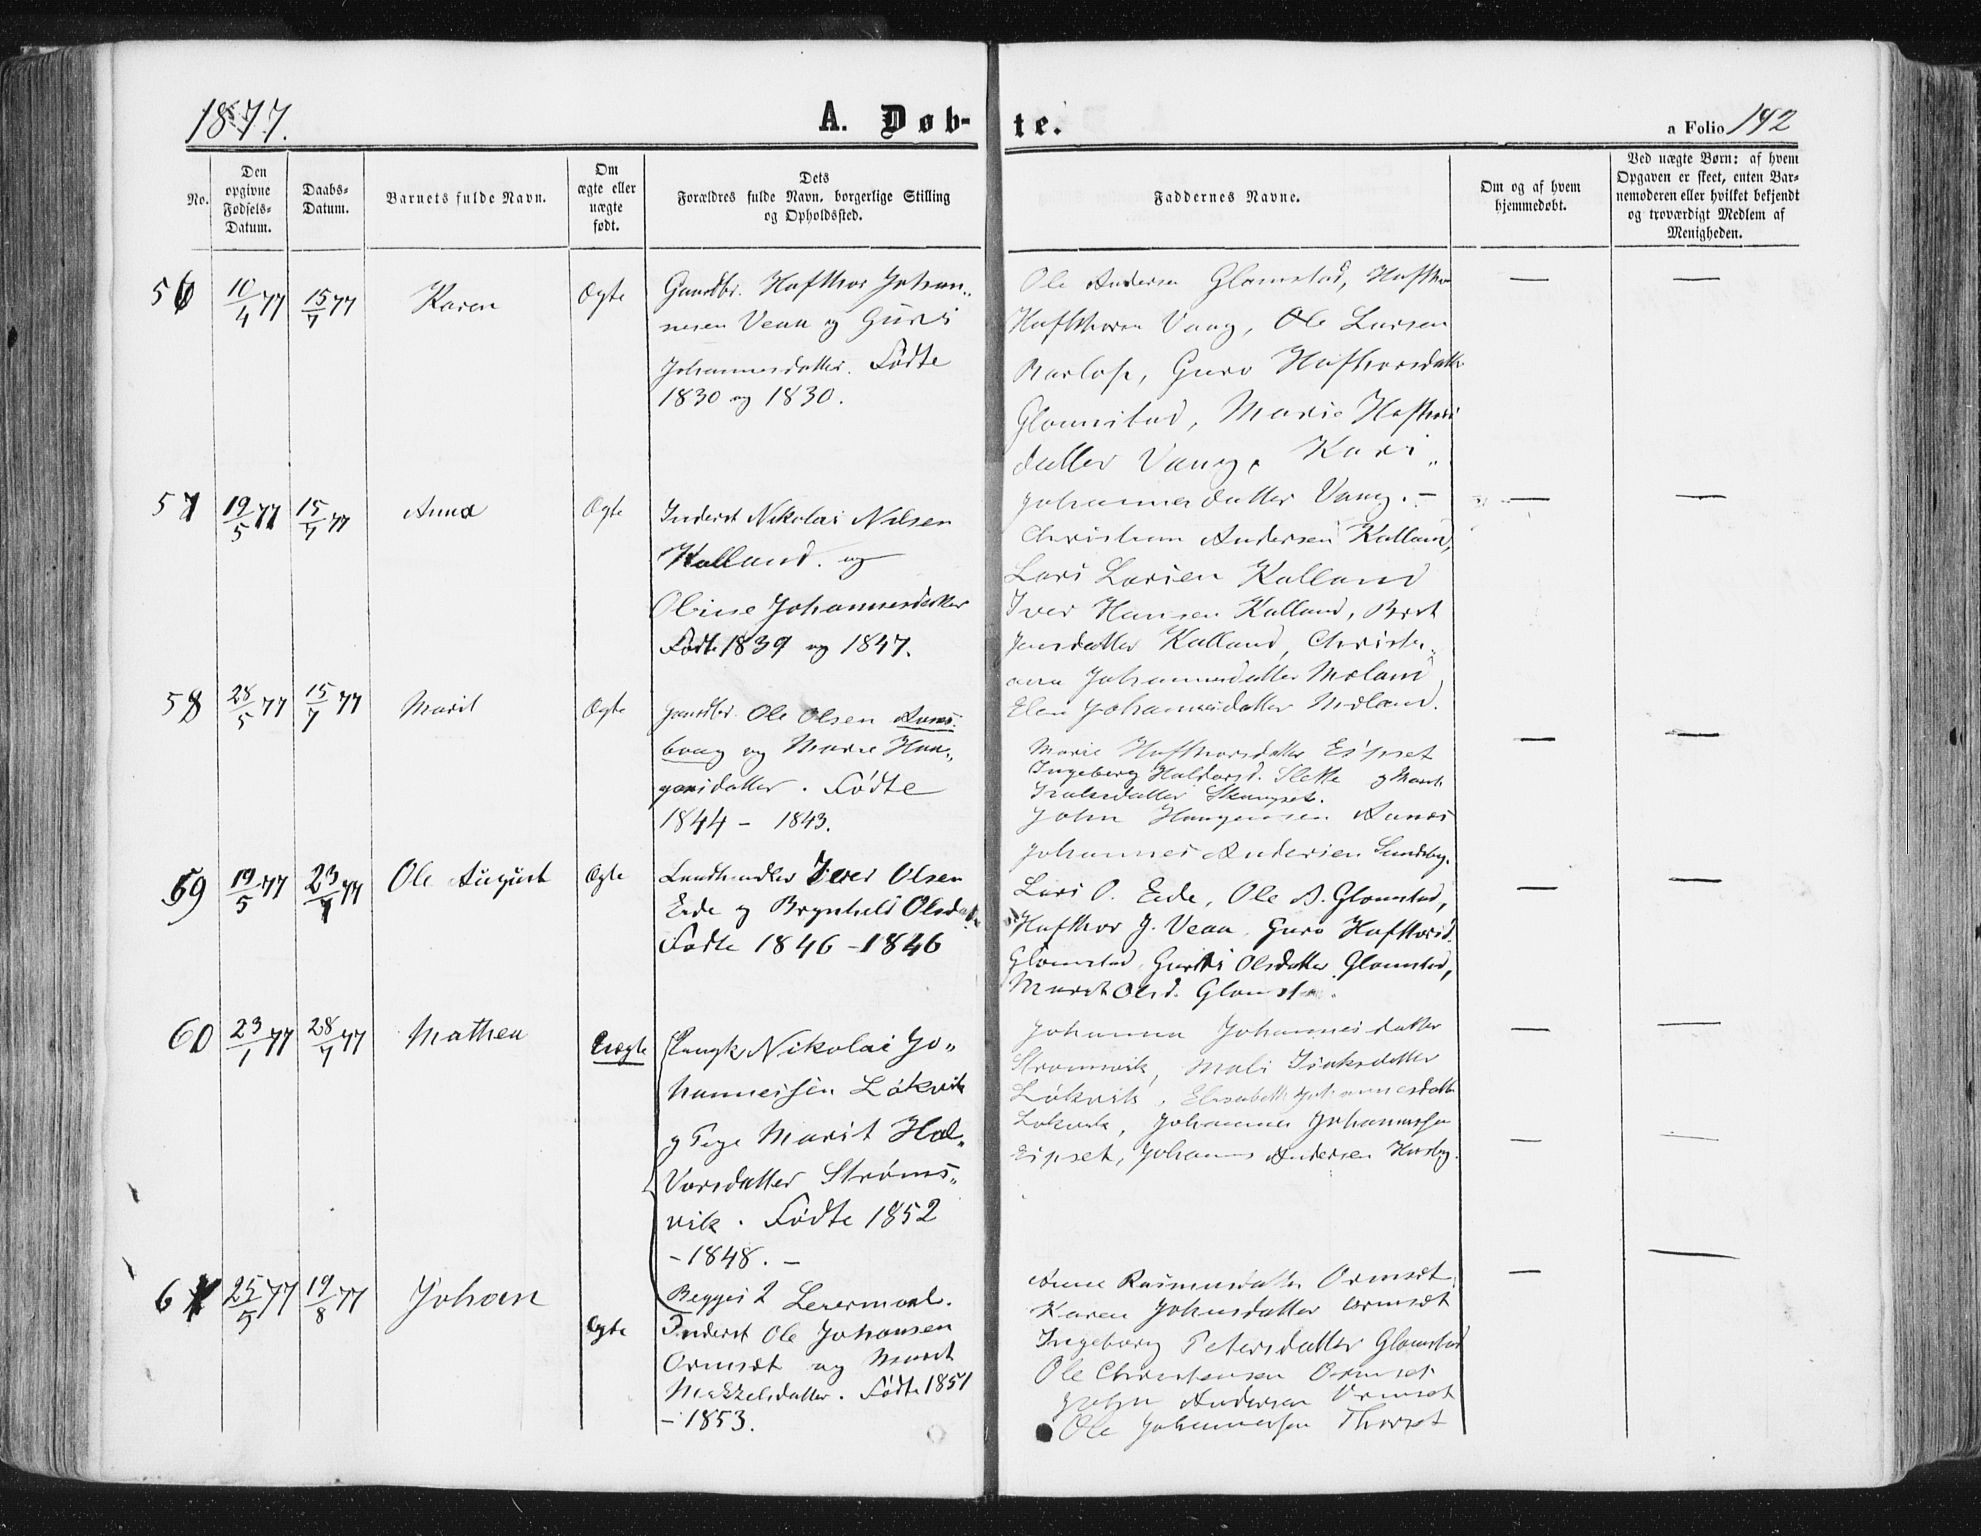 1877.
A. Døb-te.
a Folio 142
No.
Den opgivne Fødsels-Datum.
Daabs-Datum.
Barnets fulde Navn.
Om ægte eller uægte født.
Dets Forældres fulde Navn, borgerlige Stilling og Opholdsted.
Faddernes Navne.
Om og af hvem hjemmedøbt.
Ved uægte Børn: af hvem Opgaven er skeet, enten Barnemoderen eller hvilket bekjendt og troværdigt Medlem af Menigheden.
56 10/4 77 15/7 77 Karen Ægte
Gaardbr. Hafthor Johan-
nesen Veau og Guri
Johannesdatter. Fødte
1830 og 1830.
Ole Andersen Glomstad, Hafthor
Hafthoren Vaag, Ole Larsen
Guro Hafthorsdatter
Glomstad, Marie Hafthors
datter Vaag, Kari
Johannesdatter Vaag. –
57 19/5 77 15/7 77 Anna Ægte
Inderst Nikolai Nilsen
Kalland og
Oline Johannesdatter
Fødte 1839 og 1847.
Christian Andersen Kalland,
Lars Larsen Kalland
Iver Hansen Kalland, Berit
Jensdatter Kalland, Christi-
ana Johannesdatter Moland
Elen Johannesdatter Moland.
58 28/5 77 15/7 77 Marit Ægte
Gaardbr. Ole Olsen Aunes
vaag og Marie Haa-
gensdatter. Fødte
1844 – 1843.
Marie Hafthorsdatter Eipset
Ingeborg Haldorsd. Slette og Marit
Isaksdatter Skaugset.
John Haagensen Aunes
Johannes Andersen Sundsby.
59 19/5 77 23/7 77 Ole August Ægte
Landhandler Iver Olsen
Eide og Brynhild Olsd.
Fødte 1846 – 1846
Lars O. Eide, Ole A. Glomstad,
Hafthor J. Veau, Guro Hafthorsd.
Glomstad, Guri Olsdatter Glomstad,
Marit Olsd. Glomstad.
60 23/1 77 28/7 77 Mathea Uægte
Ungk. Nikolai Jo-
hannessen Løkvik
og Pige Marit Hal-
vorsdatter Strøms-
vik. Fødte 1852
– 1848. –
Begges 2 Leiermaal.
Johanna Johannesdatter
Strømsvik, Mali Isaksdatter
Løkvik, Elisabeth Johannesdatter
Løkvik, Johannes Johannessen
Eipset, Johannes Andersen Husby.
61 25/5 77 19/8 77 Johan Ægte
Inderst Ole Johansen
Ormset og Marit
Mikkelsdatter. Fødte 1851
– 1853.
Anne Rasmusdatter Ormset,
Karen Johnsdatter Ormset
Ingeborg Petersdatter Glomstad
Ole Christensen Ormset
John Andersen Ormset
Ole Johannessen Thorset